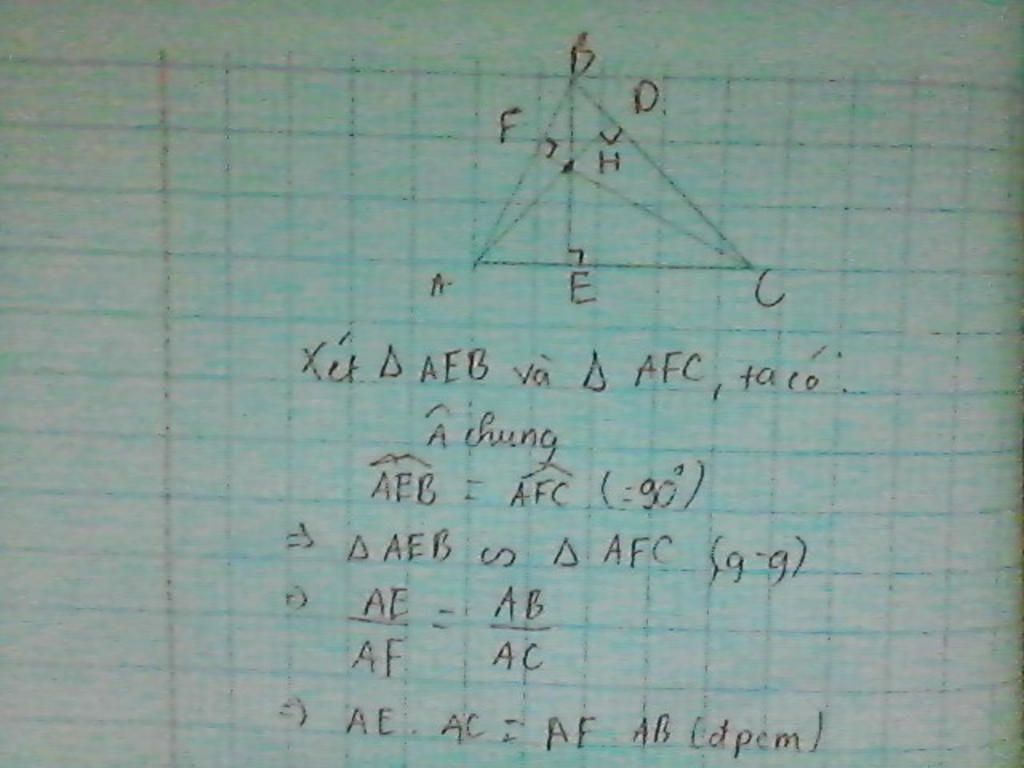 B
D
F
H
A
E
C
Xét Δ AEB và Δ AFC, ta có:
Â chung
\widehat{AEB} = \widehat{AFC} (=90°)
=> Δ AEB ∽ Δ AFC (g-g)
=> \frac{AE}{AF} = \frac{AB}{AC}
=> AE . AC = AF AB (đpcm)